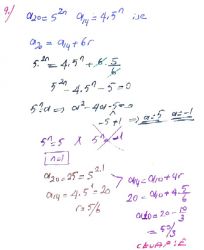 9)
a₂₀ = 5²ⁿ a₁₄ = 4.5ⁿ ise
a₂₀ = a₁₄ + 6r
5²ⁿ = 4.5ⁿ + 6.5/6
5²ⁿ - 4.5ⁿ - 5 = 0
5ⁿ = a ⇒ a² - 4a - 5 = 0
-5 +1 ⇒ a=5 a=-1
5ⁿ = 5 5ⁿ = -1
n=1
a₂₀ = 25 = 5^2.1
a₁₄ = 4.5¹ = 20
r = 5/6
a₁₄ = a₁₀ + 4r
20 = a₁₀ + 4.5/6
a₁₀ = 20 - 10/3
= 50/3
CEVAP: E